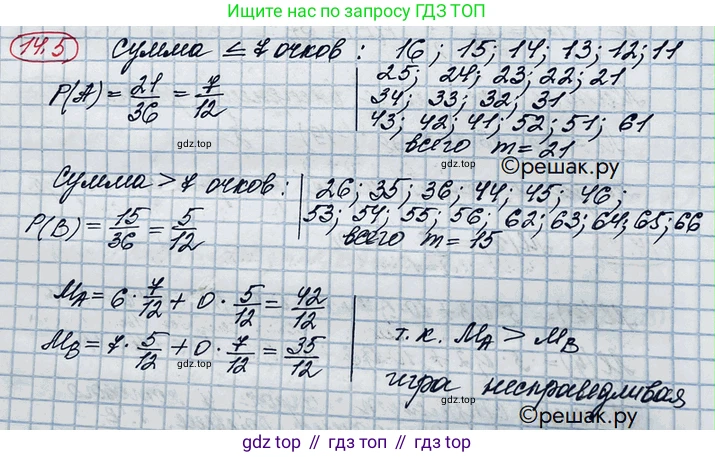 Ищите нас по запросу ГДЗ ТОП
14.5 Сумма ≤ 7 очков : 16; 15; 14; 13; 12; 11
25; 24; 23; 22; 21
P(A) = 21/36 = 7/12
34; 33; 32; 31
43; 42; 41; 52; 51; 61
gdz.top
всего m = 21
©решак.ру
Сумма > 7 очков : 26; 35; 36; 44; 45; 46;
P(B) = 15/36 = 5/12
53; 54; 55; 56; 62; 63; 64; 65; 66
gdz.top
всего m = 15
M_A = 6 · 7/12 + 0 · 5/12 = 42/12
M_B = 7 · 5/12 + 0 · 7/12 = 35/12
gdz.top
т.к. M_A > M_B
игра несправедливая
gdz.top
©решак.ру
gdz.top // гдз топ // gdz top